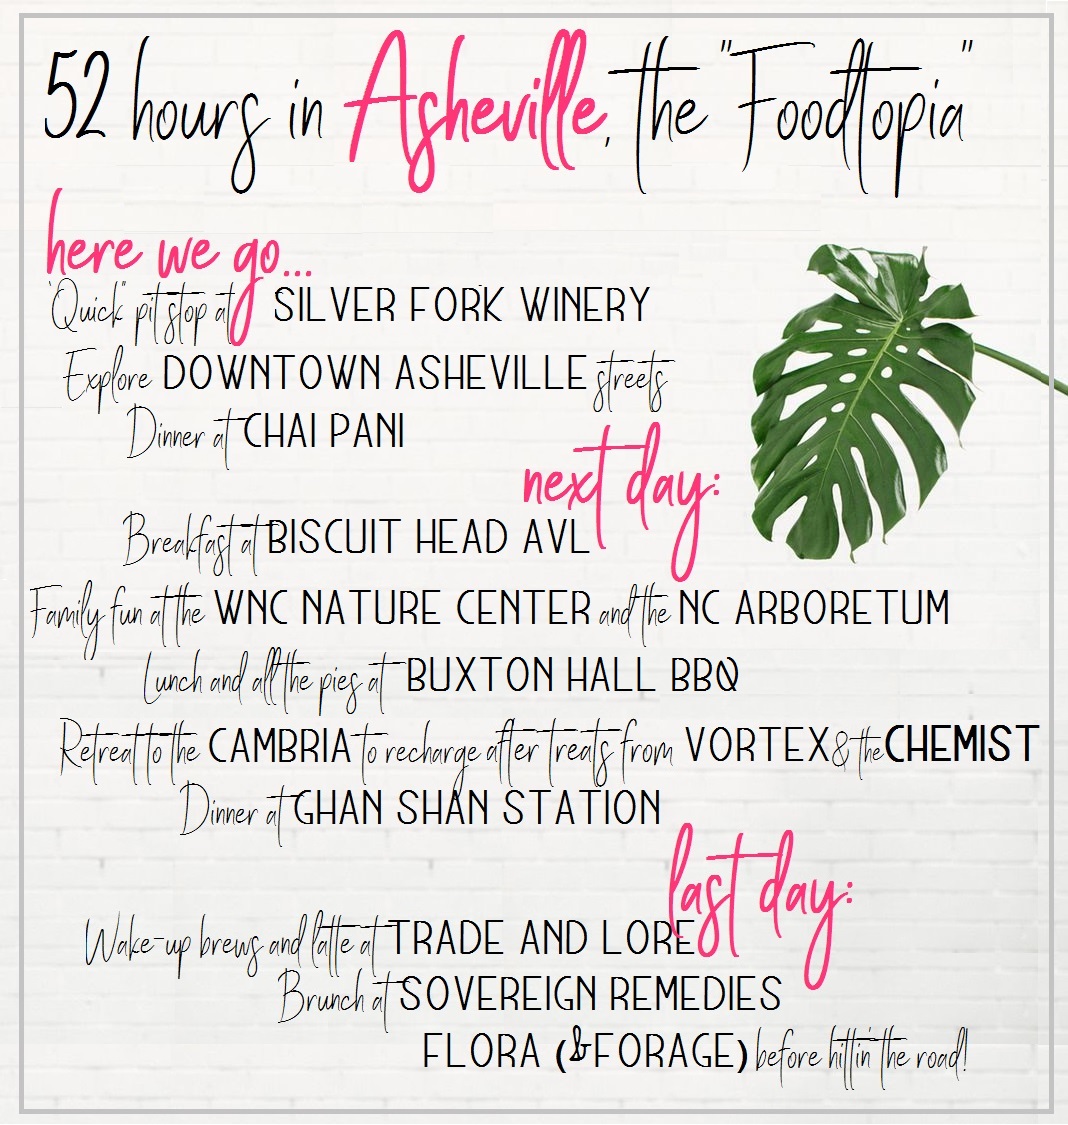 52 hours in Asheville, the "Foodtopia"
here we go...
"Quick" pit stop at SILVER FORK WINERY
Explore DOWNTOWN ASHEVILLE streets
Dinner at CHAI PANI
next day:
Breakfast at BISCUIT HEAD AVL
Family fun at the WNC NATURE CENTER and the NC ARBORETUM
Lunch and all the pies at BUXTON HALL BBQ
Retreat to the CAMBRIA to recharge after treats from VORTEX & the CHEMIST
Dinner at GHAN SHAN STATION
last day:
Wake-up brews and latte at TRADE AND LORE
Brunch at SOVEREIGN REMEDIES
FLORA (&FORAGE) before hittin' the road!